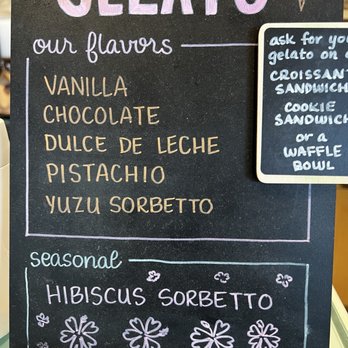 GELATO
our flavors
VANILLA
CHOCOLATE
DULCE DE LECHE
PISTACHIO
YUZU SORBETTO
seasonal
HIBISCUS SORBETTO
ask for you
gelato on a
CROISSANT
SANDWICH
COOKIE
SANDWICH
or a
WAFFLE
BOWL